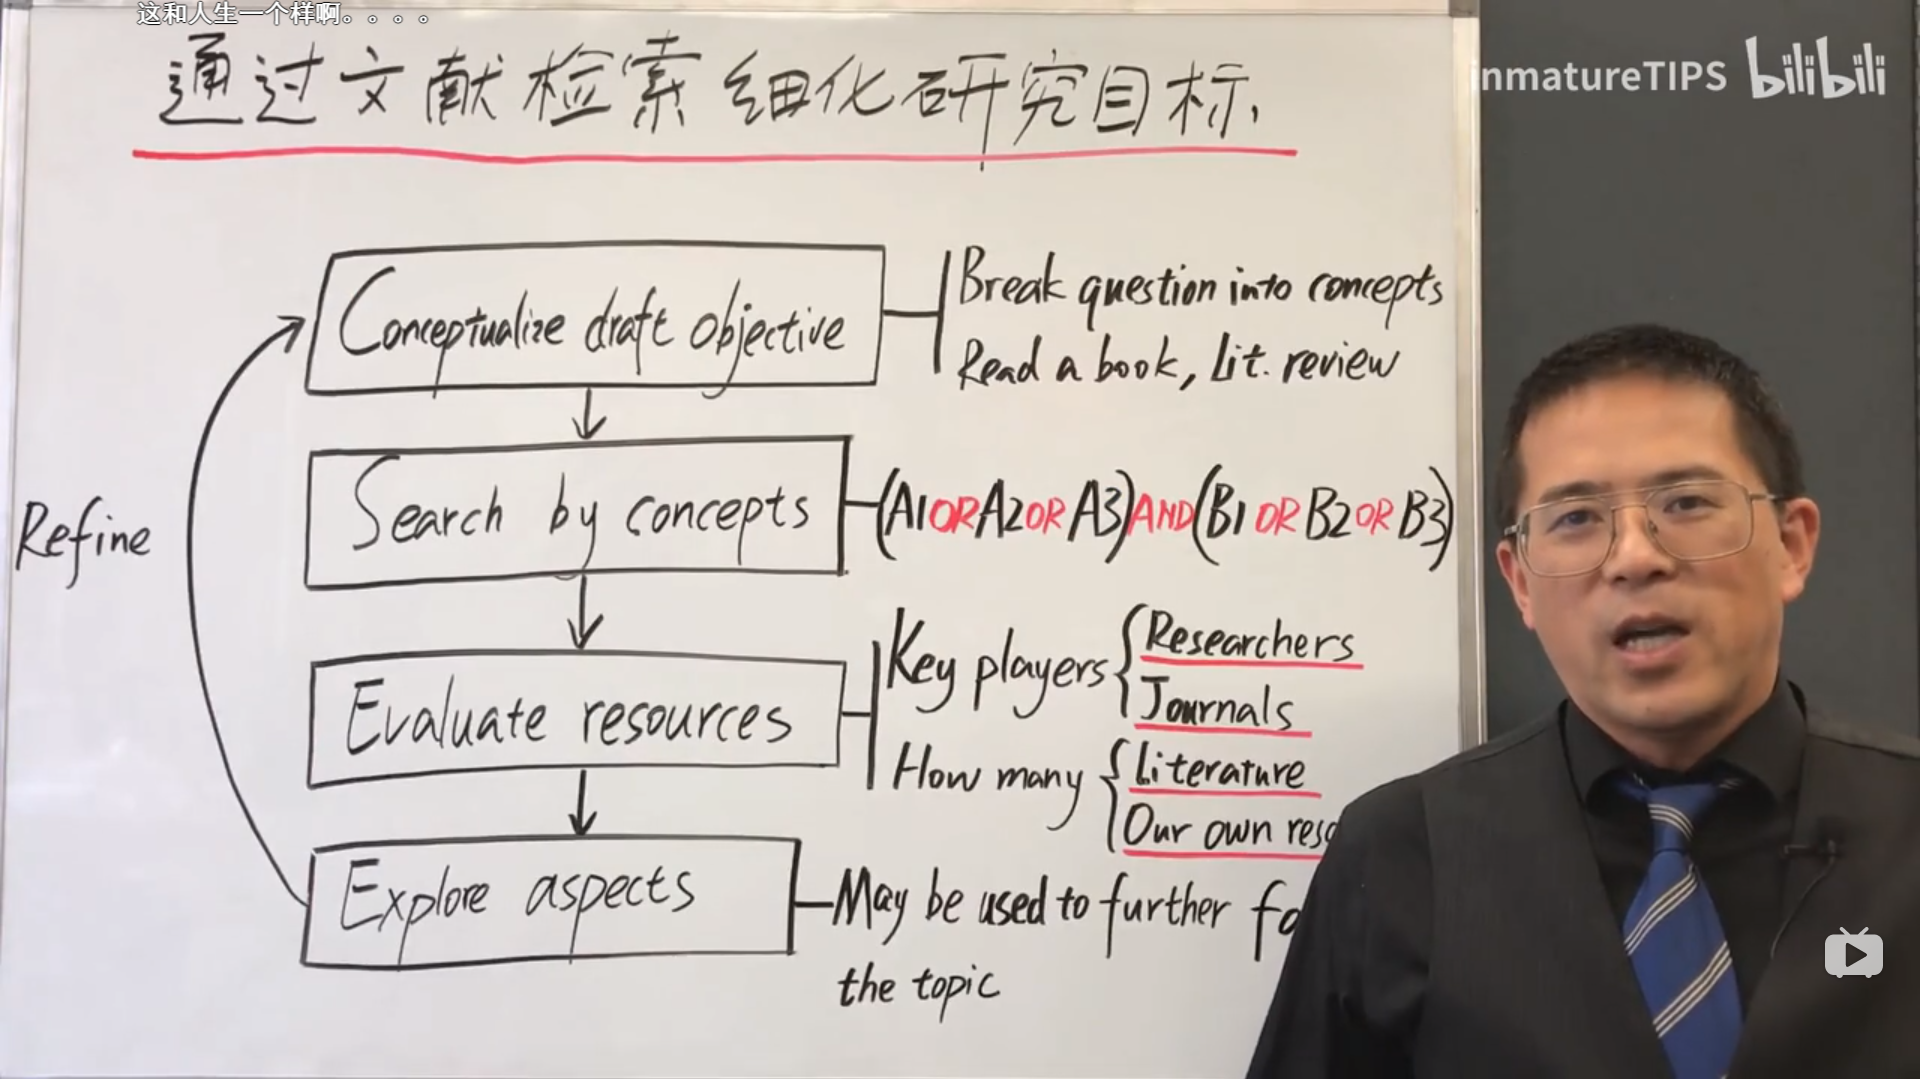 这和人生一个样啊。。。。
通过文献检索细化研究目标
nmatureTIPS bilibili
Conceptualize draft objective
Break question into concepts
Read a book, Lit. review
Search by concepts
(A1 OR A2 OR A3) AND (B1 OR B2 OR B3)
Refine
Evaluate resources
Key players
Researchers
Journals
How many
Literature
Our own
Explore aspects
May be used to further
the topic